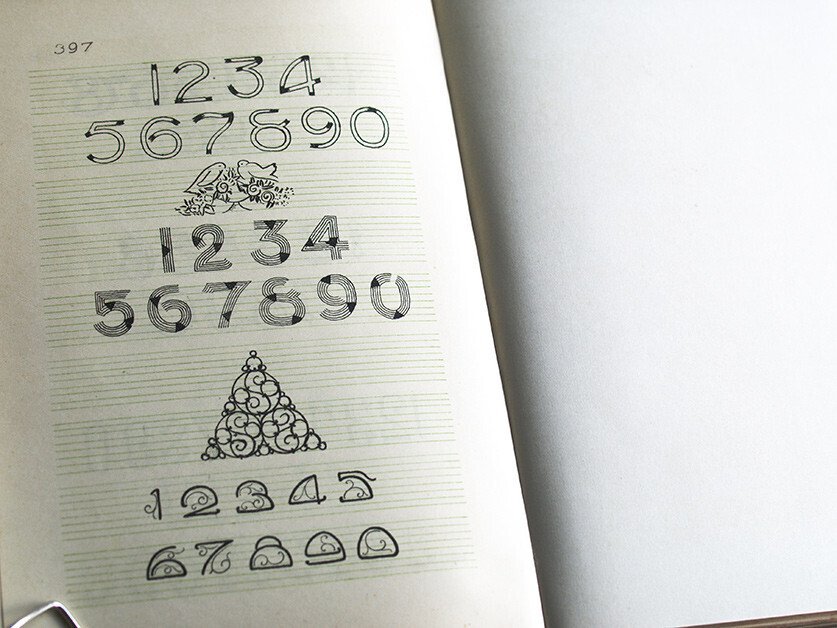 397
1234
567890
1234
567890
12345
67890